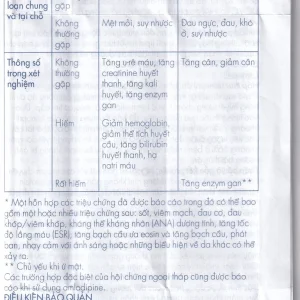 loạn chung gặp
và tại chỗ
Không thường gặp
Mệt mỏi, suy nhược
Đau ngực, đau, khó ở, suy nhược
Thông số trong xét nghiệm
Không thường gặp
Tăng urê máu, tăng creatinine huyết thanh, tăng kali huyết, tăng enzym gan
Tăng cân, giảm cân
Hiếm
Giảm hemoglobin, giảm thể tích huyết cầu, tăng bilirubin huyết thanh, hạ natri máu
Rất hiếm
Tăng enzym gan**
* Một hỗn hợp các triệu chứng đã được báo cáo trong đó có thể bao
gồm một hoặc nhiều triệu chứng sau: sốt, viêm mạch, đau cơ, đau
khớp/viêm khớp, kháng thể kháng nhân (ANA) dương tính, tăng tốc
độ lắng máu (ESR), tăng bạch cầu ưa eosin và tăng bạch cầu, phát
ban, nhạy cảm với ánh sáng hoặc những biểu hiện về da khác có thể
xảy ra.
** Chủ yếu khi ứ mật.
Các trường hợp đặc biệt của hội chứng ngoại tháp cũng được báo
cáo khi sử dụng amlodipine.
ĐIỀU KIỆN BẢO QUẢN